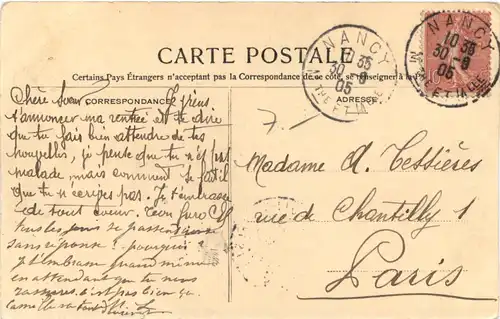 CARTE POSTALE
Certains Pays Étrangers n'acceptant pas la Correspondance de ce côté, se renseigner à la P
CORRESPONDANCE
ADRESSE
NANCY
10 35
30 -8
05
MTHE ET MLLE
NANCY
35
30 -8
05
MTHE ET MLLE
7.—
Chère Soeur je viens
t'annoncer ma rentrée est te dire
que tu fais bien attendre de tes
nouvelles, je pense que tu n'es pas
malade, mais comment se fait-il
que tu n'écrives pas. Je t'embrasse
de tout coeur.
Tous les jours se passent
sans réponse? pourquoi?
je t'embrasse quand même
en attendant que tu nous
c'est pas bien ça
Madame A. Tessières
rue de Chantilly 1
Paris